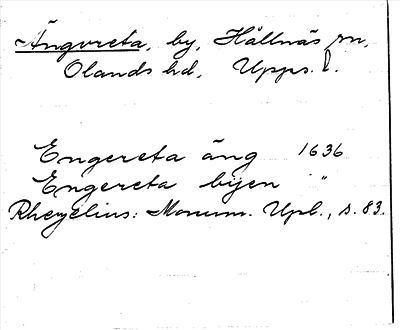 Ängvreta, by, Hållnäs sn,
Olands hd, Upps. l.
Engereta äng 1636
Engereta byen "
Rhezelius: Monum. Upl., s. 83.